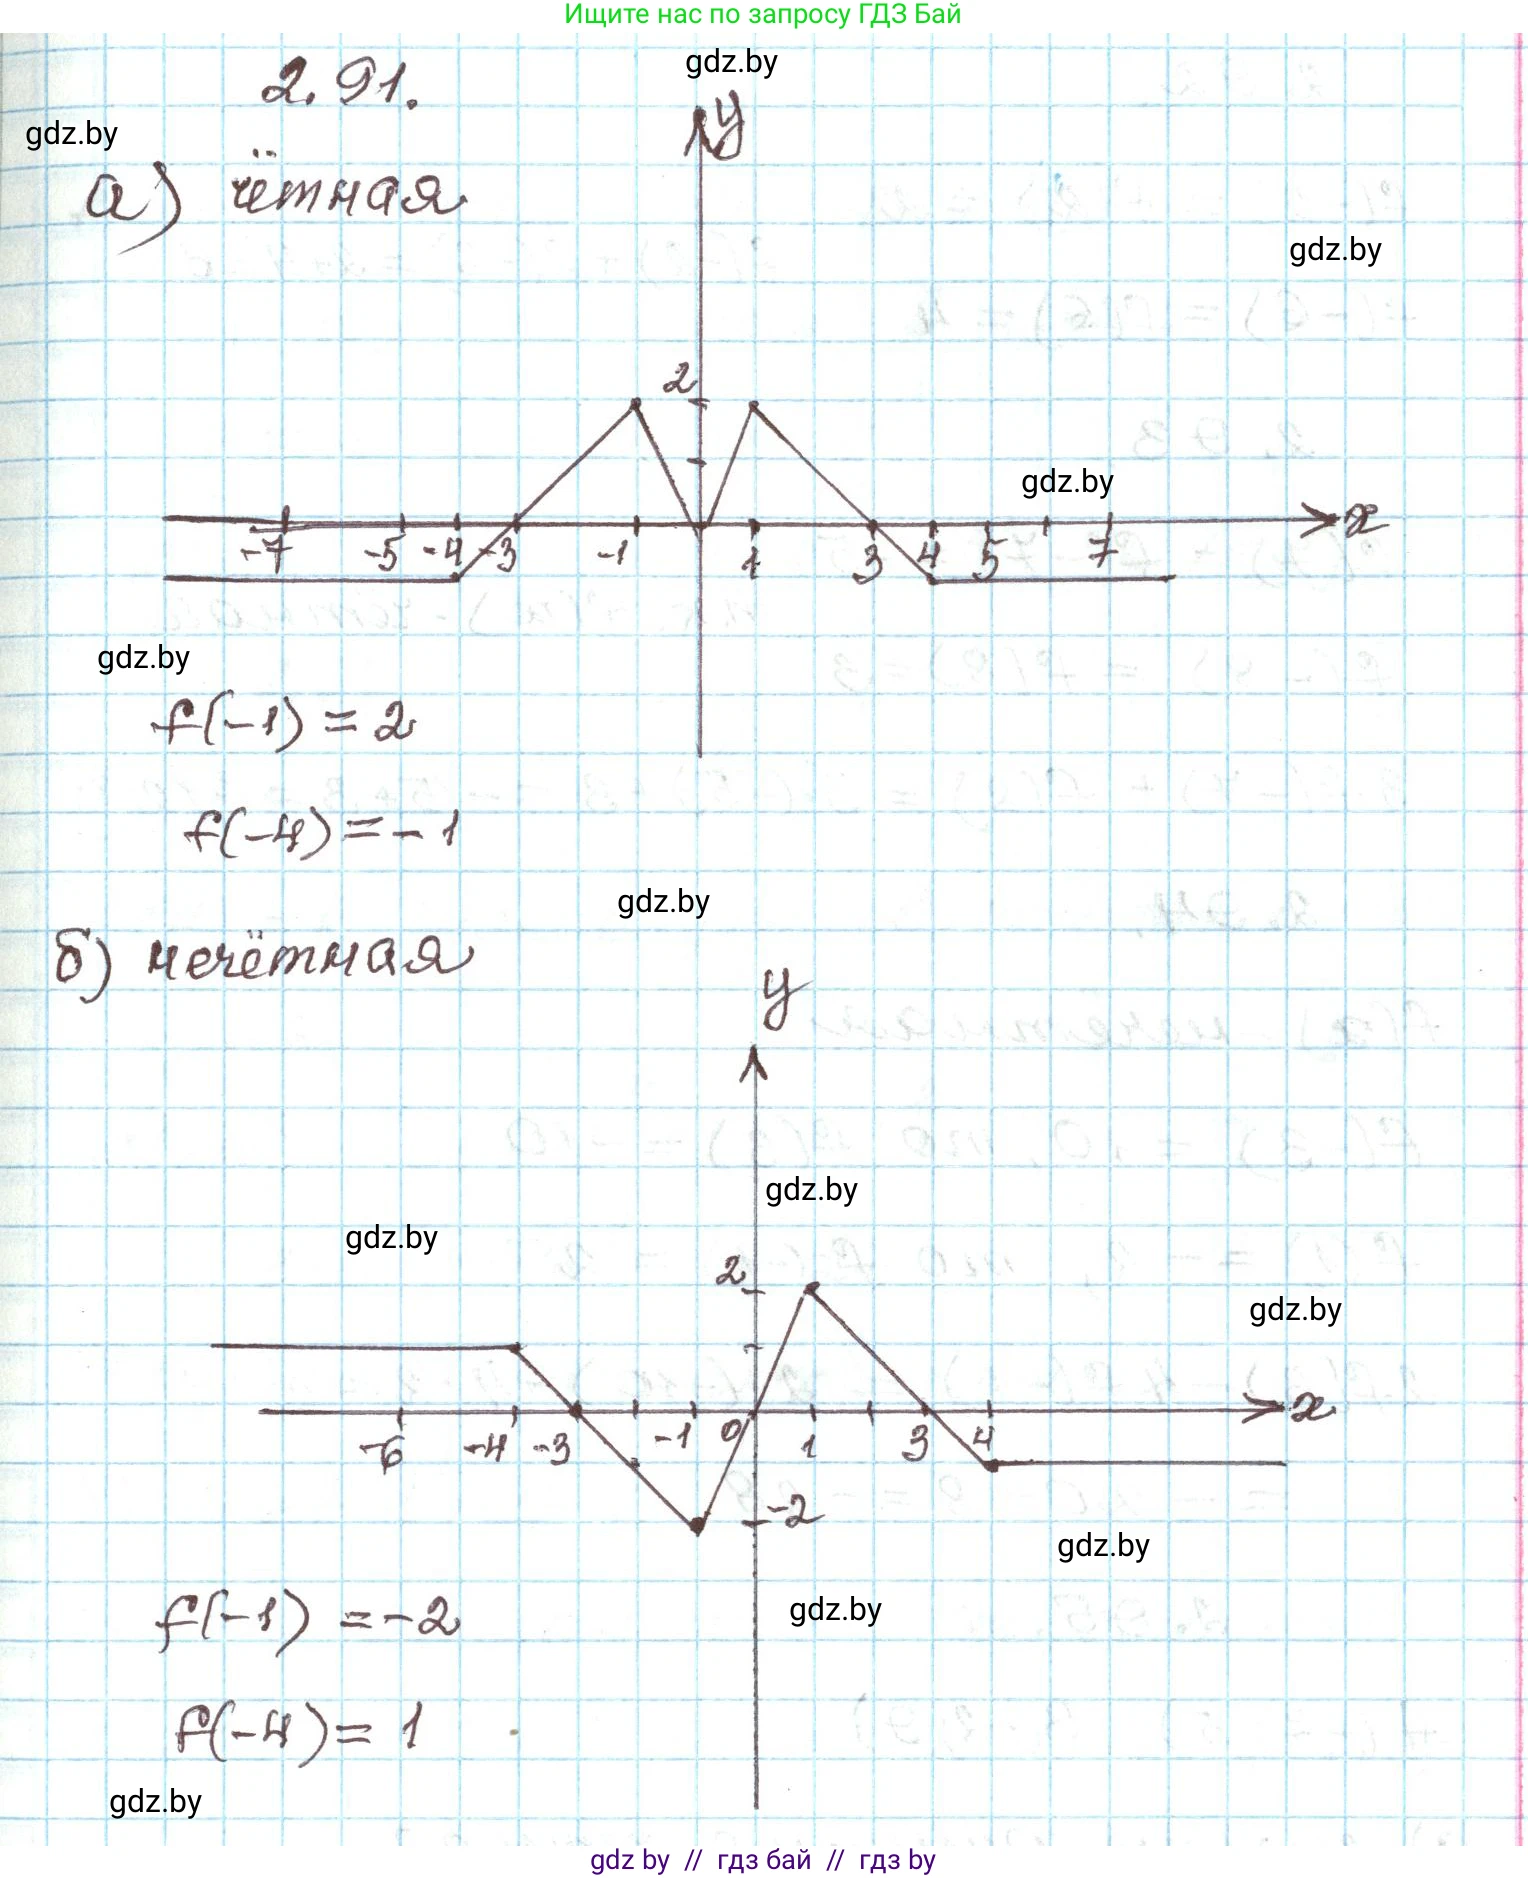 Ищите нас по запросу ГДЗ Бай
gdz.by
2.91.
gdz.by
y
а) чётная
gdz.by
2
gdz.by
x
-7 -5 -4 -3 -1 1 3 4 5 7
gdz.by
f(-1) = 2
f(-4) = -1
gdz.by
б) нечётная
y
gdz.by
gdz.by
2
gdz.by
x
-6 -4 -3 -1 0 1 3 4
-2
gdz.by
f(-1) = -2
gdz.by
f(-4) = 1
gdz.by
gdz by // гдз бай // гдз by